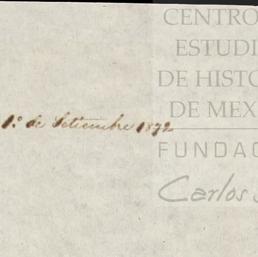 CENTRO
ESTUDI
DE HISTO
DE MEX
1º de Setiembre 1872
FUNDAC
Carlos